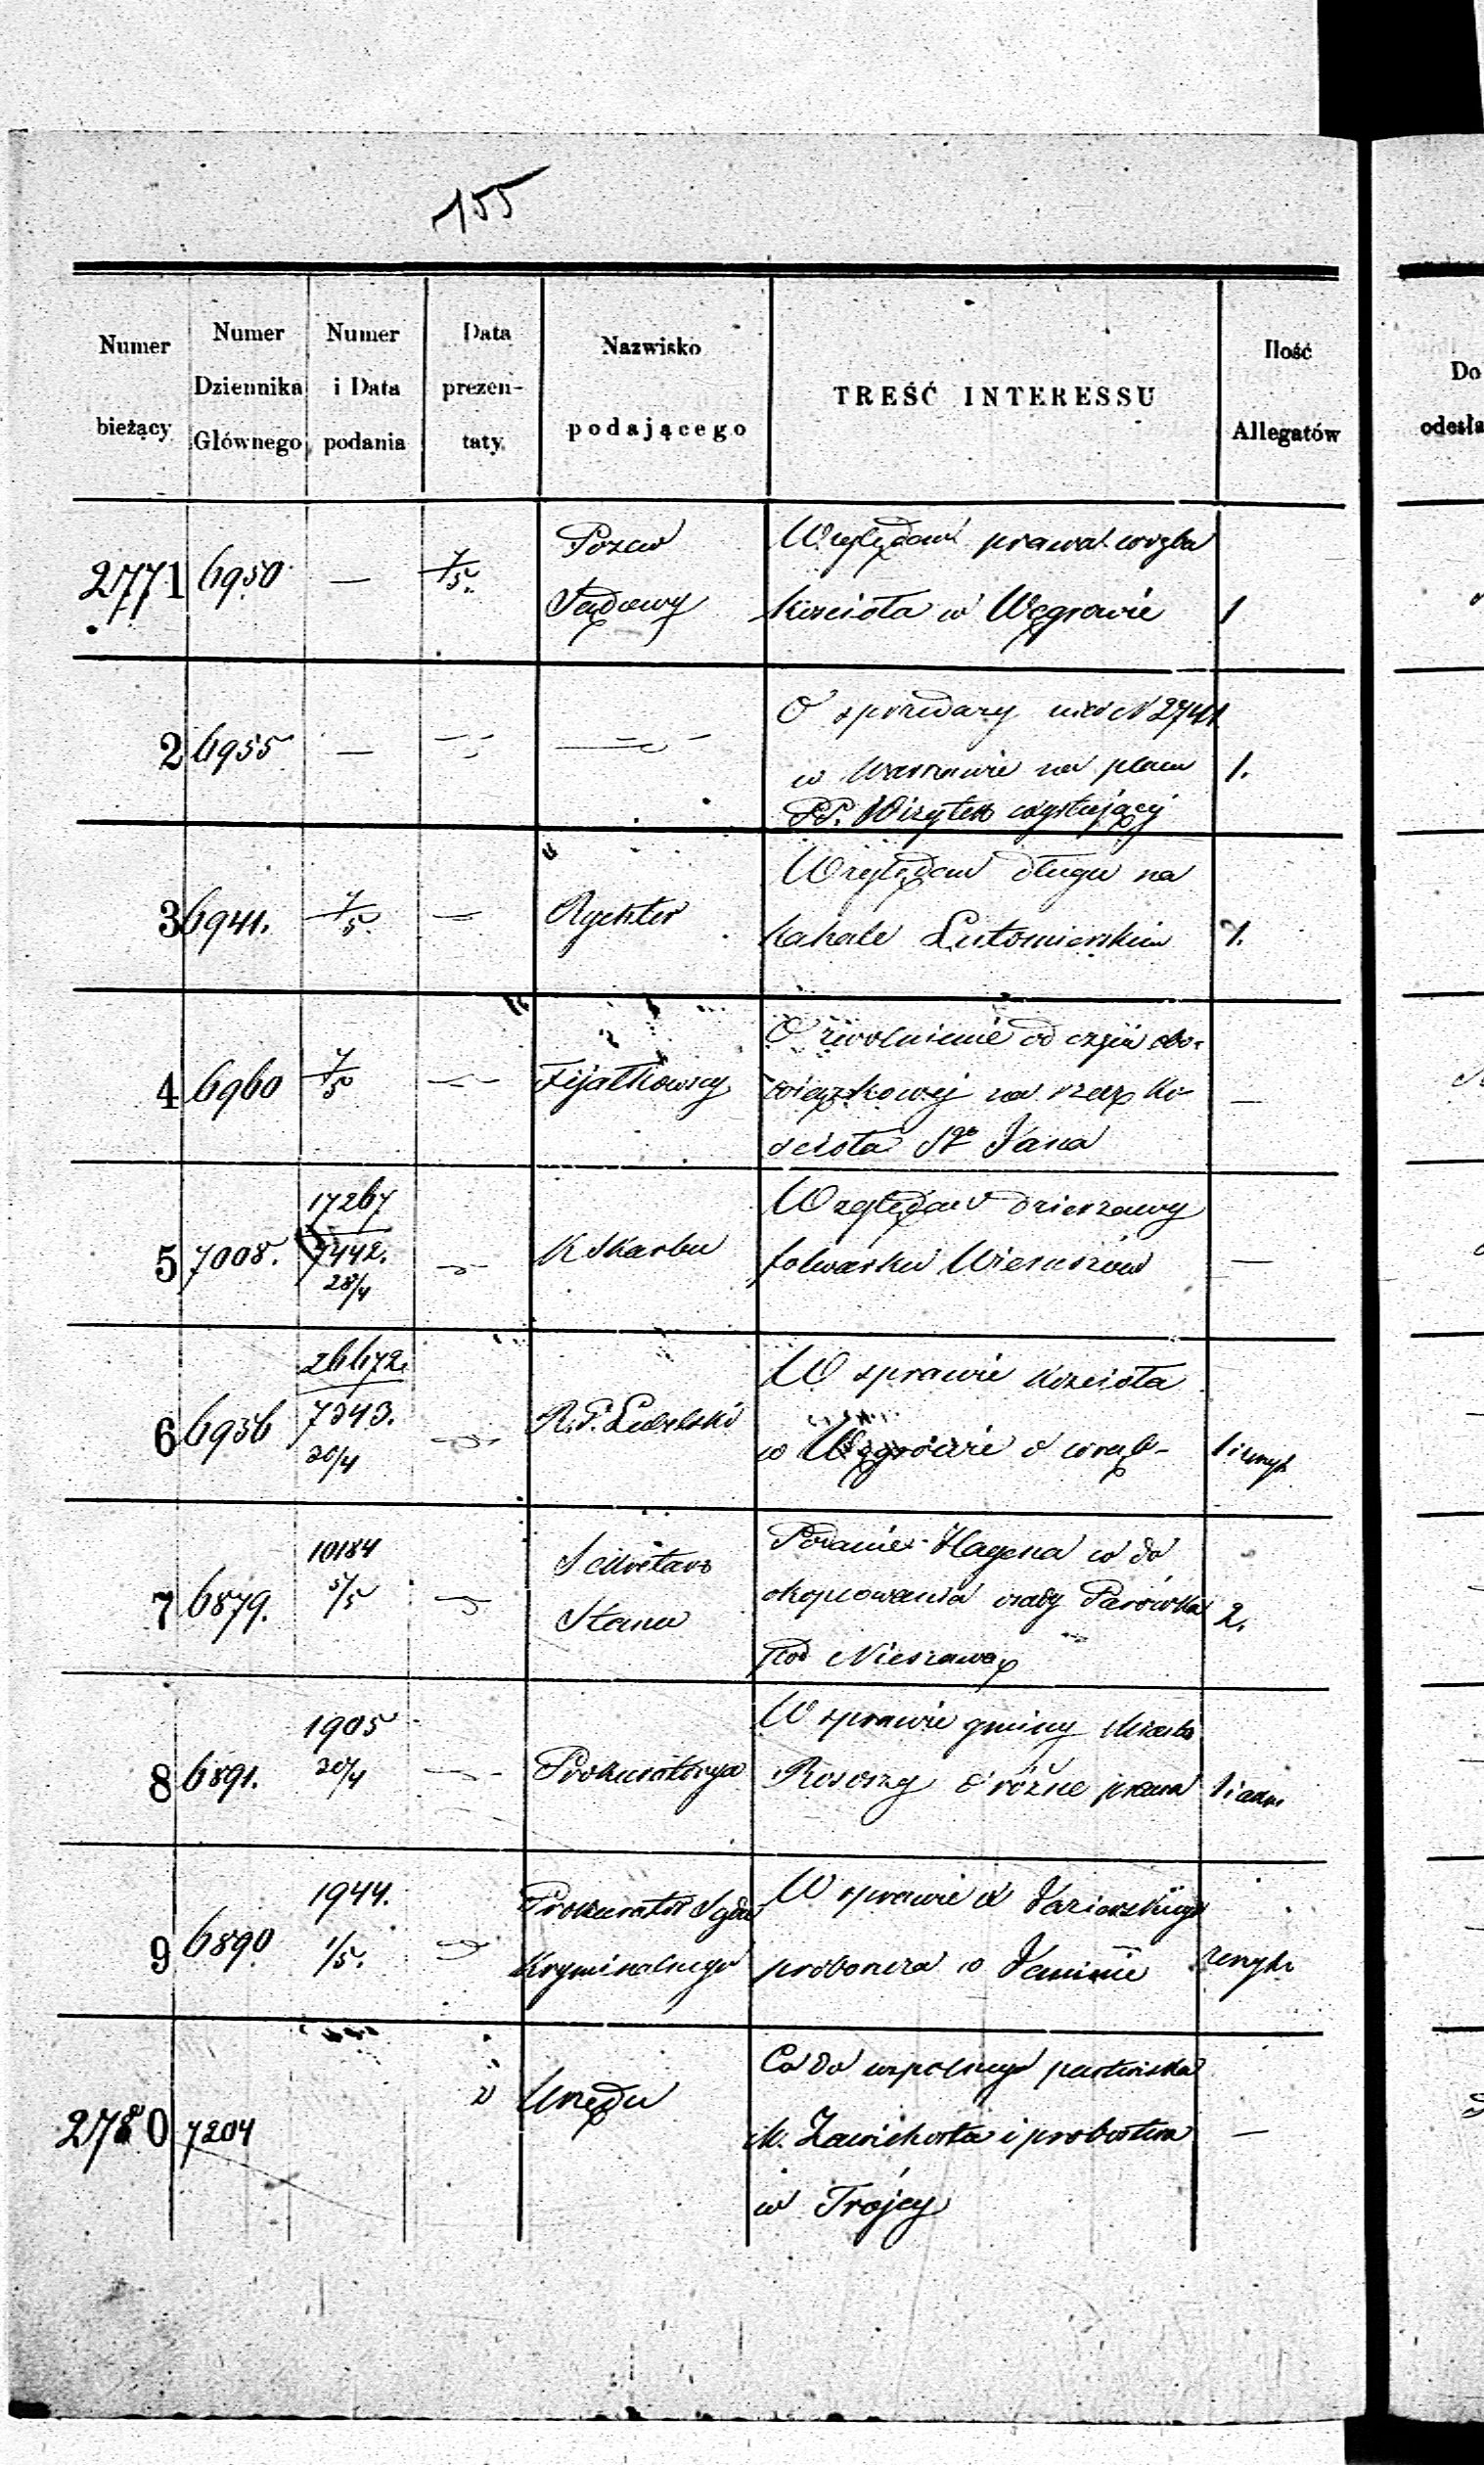 155
Numer bieżący
Numer Dziennika Głównego
Numer i Data podania
Data prezentaty.
Nazwisko podającego
TREŚĆ INTERESSU
Ilość Allegatów
Do
odesła
2771 6950 — 7/5. Pozew Względem prawa wrębu
Sądowy Kościoła w Węgrowie 1
2 6955 — O sprzedaży nier N 2741
w Warszawie na placu 1.
PP. Wizytek
3 6941. 7/5. Rychter Względem długu na
Kahale Lutomierskim 1.
4 6960 7/5 Fijałkowscy O uwolnienie od obo-
wiązkowej na rzecz Ko-
ścioła Sgo Jana —
5 7008. 17267
7442.
28/4 K Skarbu Względem dzierżawy
folwarku Wieruszów —
6 6936 26672.
7343.
20/4 R. G. Lubelski W sprawie Kościoła
w Węgrowie o wręb-
7 6879. 10184
5/5 Sekretarz
Stanu Podanie Hagena w do
okopcowania osady Parówka 2.
pod Nieszawą
8 6891. 1905
20/4 Prokuratorya W sprawie gminy Miasta
Rososzy o różne prawa
9 6890 1944.
1/5. Prokurator Sądu
Kryminalnego W sprawie
proboszcza w Janinie
2780 7204 Urzędu Co do wspólnego pastwiska
M. Zawichosta i probostwa —
w Trójcy